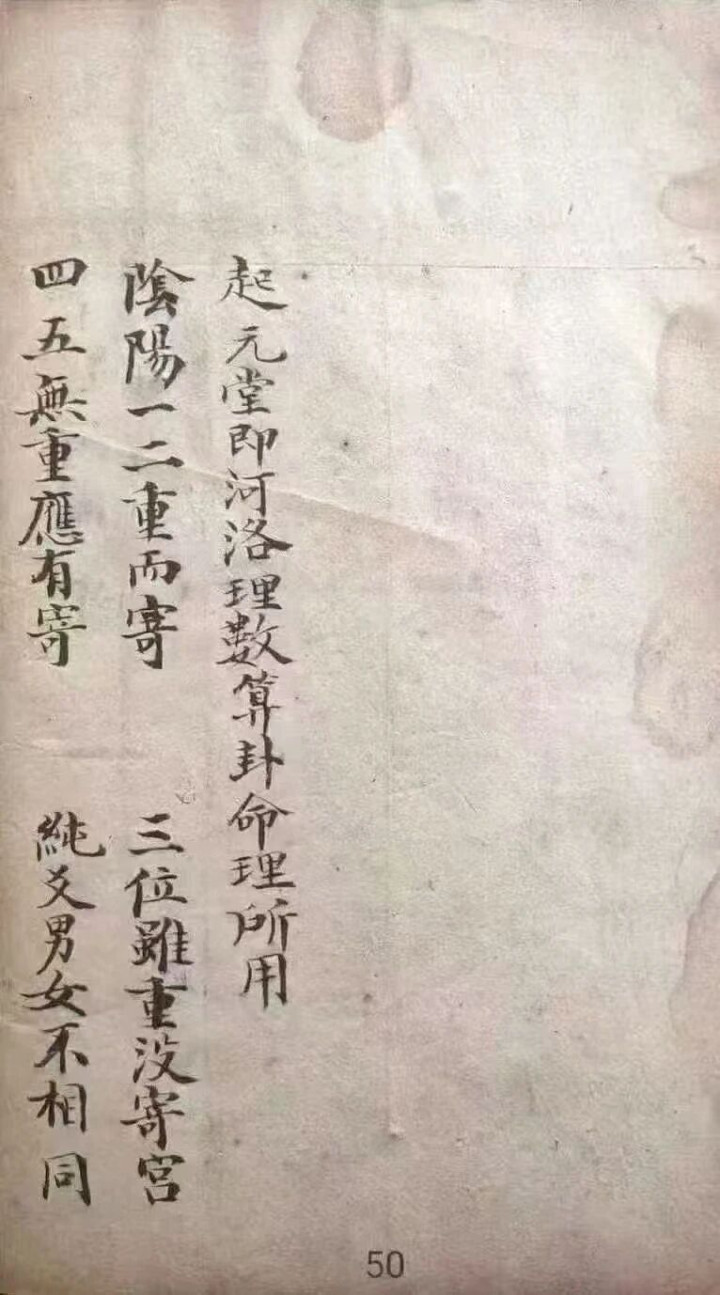 起元堂即河洛理數算卦命理所用
陰陽一二重而寄 三位雖重没寄宮
四五無重應有寄 純爻男女不相同
50